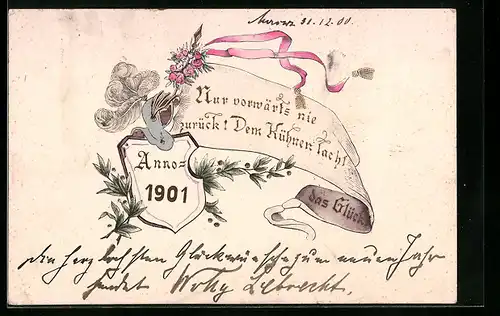 31.12.00
Nur vorwärts nie
zurück! Dem Kühnen lacht
das Glück
Anno
1901
Die herzlichsten Glückwünsche zum neuen Jahr
sendet Willy Liebrecht.